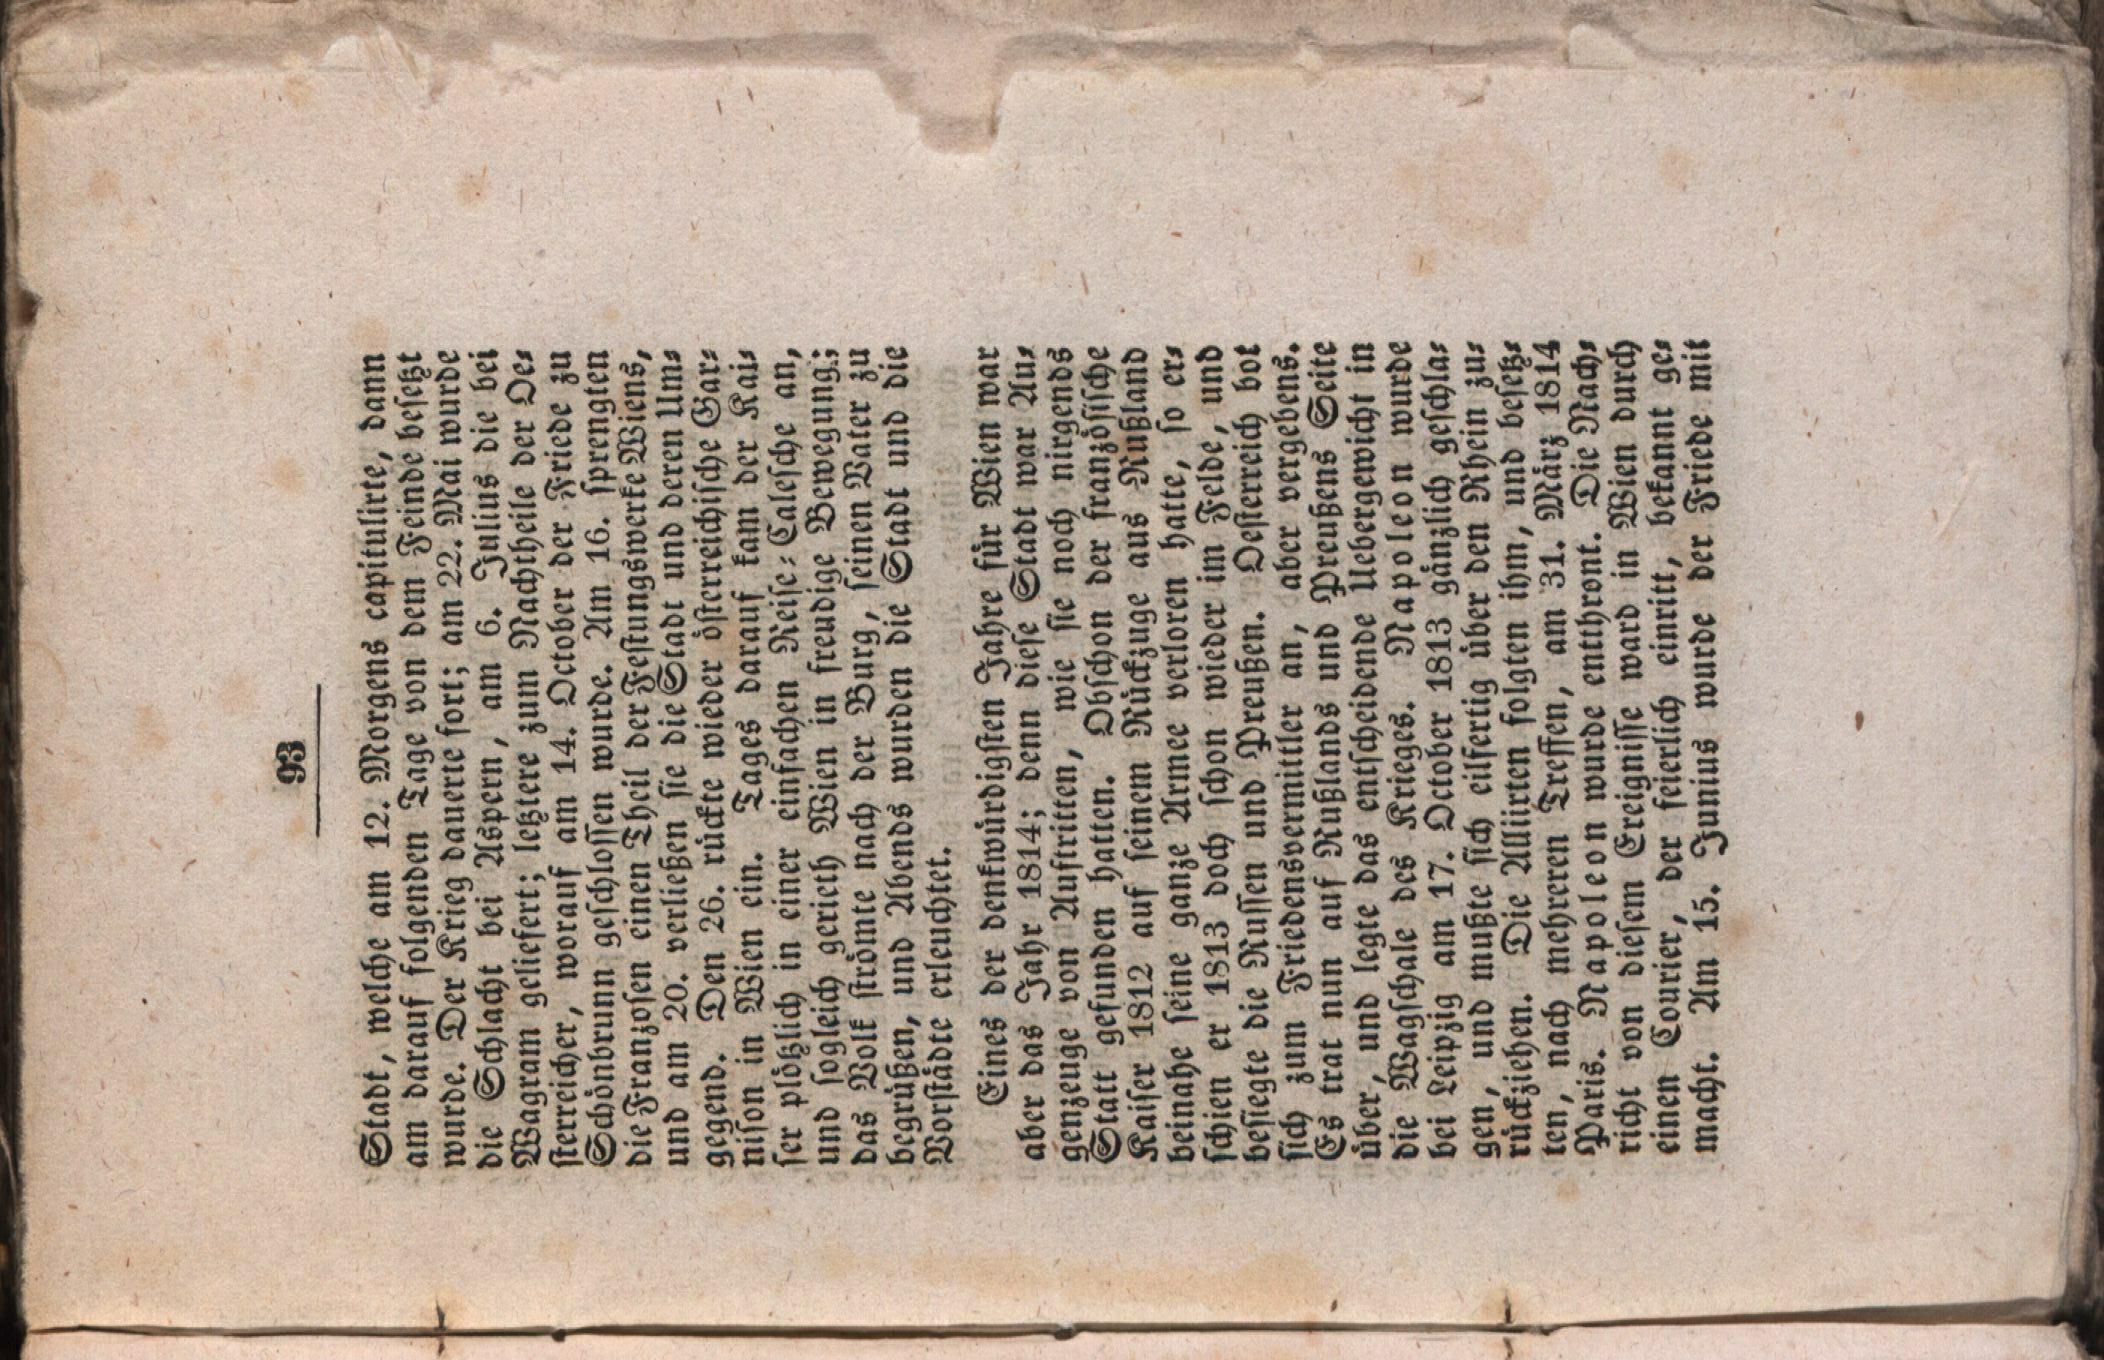 93
Stadt, welche am 12. Morgens capitulirte, dann
am darauf folgenden Tage von dem Feinde besetzt
wurde. Der Krieg dauerte fort; am 22. Mai wurde
die Schlacht bei Aspern, am 6. Julius die bei
Wagram geliefert; letztere zum Nachtheile der Oe-
sterreicher, worauf am 14. October der Friede zu
Schönbrunn geschlossen wurde. Am 16. sprengten
die Franzosen einen Theil der Festungswerke Wiens,
und am 20. verließen sie die Stadt und deren Um-
gegend. Den 26. rückte wieder österreichische Gar-
nison in Wien ein. Tages darauf kam der Kai-
ser plötzlich in einer einfachen Reise-Calesche an,
und sogleich gerieth Wien in freudige Bewegung;
das Volk strömte nach der Burg, seinen Vater zu
begrüßen, und Abends wurden die Stadt und die
Vorstädte erleuchtet.
Eines der denkwürdigsten Jahre für Wien war
aber das Jahr 1814; denn diese Stadt war Au-
genzeuge von Auftritten, wie sie noch nirgends
Statt gefunden hatten. Obschon der französische
Kaiser 1812 auf seinem Rückzuge aus Rußland
beinahe seine ganze Armee verloren hatte, so er-
schien er 1813 doch schon wieder im Felde, und
besiegte die Russen und Preußen. Oesterreich bot
sich zum Friedensvermittler an, aber vergebens.
Es trat nun auf Rußlands und Preußens Seite
über, und legte das entscheidende Uebergewicht in
die Wagschale des Krieges. Napoleon wurde
bei Leipzig am 17. October 1813 gänzlich geschla-
gen, und mußte sich eilfertig über den Rhein zu-
rückziehen. Die Alliirten folgten ihm, und besetz-
ten, nach mehreren Treffen, am 31. März 1814
Paris. Napoleon wurde entthront. Die Nach-
richt von diesem Ereignisse ward in Wien durch
einen Courier, der feierlich einritt, bekannt ge-
macht. Am 15. Junius wurde der Friede mit